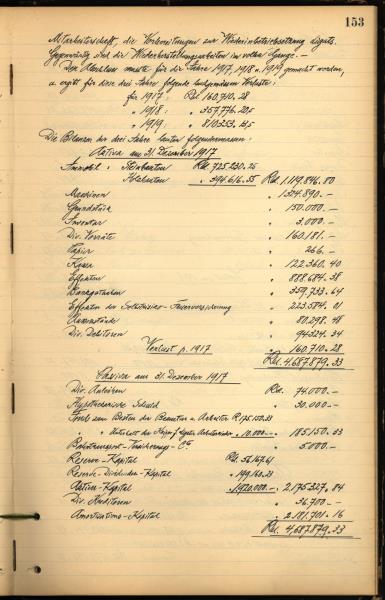 153
Mitarbeiterschaft, die Vorbereitungen zur Wiederinbetriebsetzung
Gegenwärtig sind die Wiederherstellungsarbeiten im vollen Gange. —
Der Abschluss musste für die Jahre 1917, 1918 u. 1919 gemacht werden,
u. ergibt für diese drei Jahre folgende Verluste:
für 1917: Rbl. 160,710.28
" 1918: " 357,776.20,5
" 1919: " 810,253.25,5
Die Bilanzen der drei Jahre lauten folgendermassen:
Aktiva am 31. Dezember 1917
Immobil: Steinbauten Rbl. 725,230.25
Holzbauten " 394,616.55 Rbl. 1,119,846.80
Maschinen " 1,324,890.—
Grundstück " 150,000.—
Inventar " 3,000.—
Div. Vorräte " 160,181.—
Papier " 266.—
Kassa " 122,360.40
Effekten " 888,684.38
Bankguthaben " 359,733.64
Effekten der Feuerversicherung " 223,584.01
Aussenstände " 80,298.48
Div. Debitoren " 94324.34
Verlust p. 1917 " 160,710.28
Rbl. 4,687,879.33
Passiva am 31. Dezember 1917
Div. Anleihen Rbl. 74,000.—
Hypothekarische Schuld " 30,000.—
Fonds zum Besten der Beamten u. Arbeiter R. 175,150.33
" 10,000.— " 185,150.33
" 5,000.—
Reserve-Kapital Rbl. 56,167.61
Reserve-Dividenden-Kapital " 199,160.23
Aktien-Kapital " 1,920,000.— " 2,175,327.84
Div. Kreditoren " 36,700.—
Amortisations-Kapital " 2,181,701.16
Rbl. 4,687,879.33